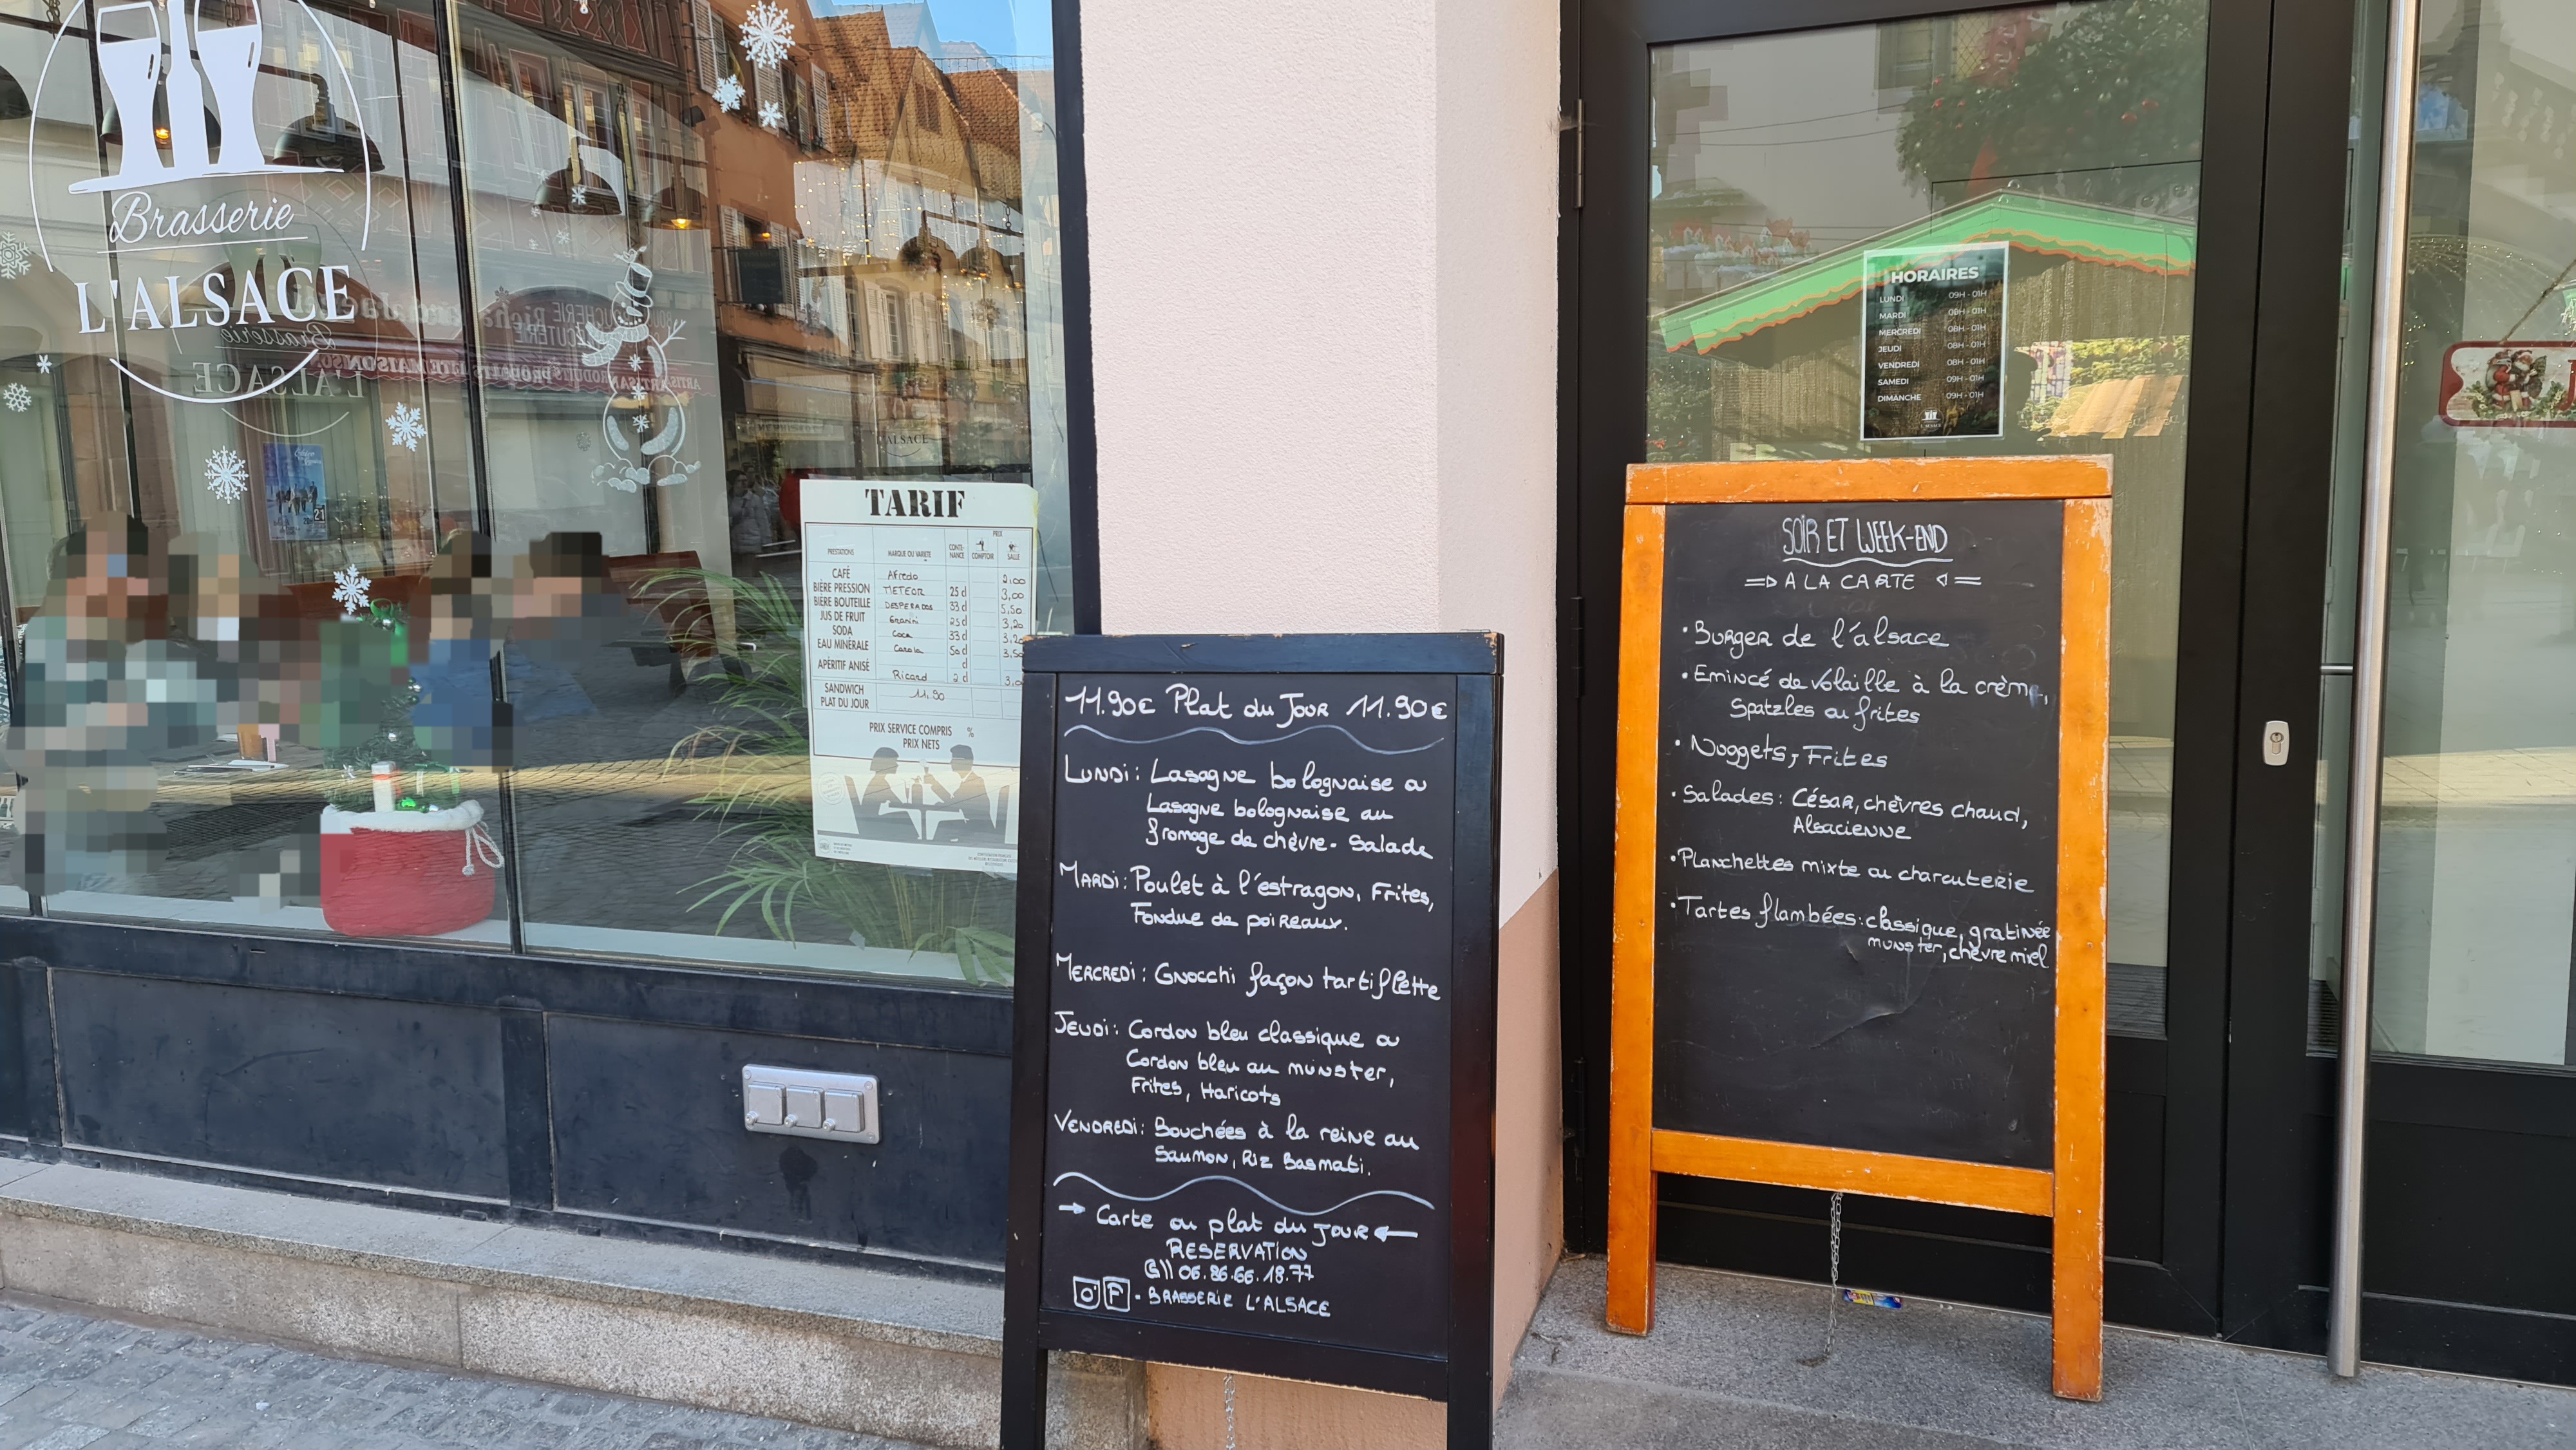 Brasserie
L'ALSACE
TARIF
PRIX
PRESTATIONS
MARQUE OU VARIETE
CONTE-
NANCE
COMPTOIR
SALLE
CAFÉ Afredo 2,00
BIÈRE PRESSION METEOR 25 d 3,00
BIÈRE BOUTEILLE DESPERADOS 33 d 5,50
JUS DE FRUIT Granini 25 d 3,20
SODA Coca 33 d
EAU MINÉRALE Carola 50 d
APÉRITIF ANISÉ d
Ricard 2 d
SANDWICH
PLAT DU JOUR 11,90
PRIX SERVICE COMPRIS %
PRIX NETS
11.90€ Plat du Jour 11.90€
LUNDI: Lasagne bolognaise ou
Lasagne bolognaise au
fromage de chèvre. Salade
MARDI: Poulet à l'estragon, Frites,
Fondue de poireaux.
MERCREDI: Gnocchi façon tartiflette
JEUDI: Cordon bleu classique ou
Cordon bleu au munster,
Frites, Haricots
VENDREDI: Bouchées à la reine au
Saumon, Riz Basmati.
Carte ou plat du jour
RESERVATION
06.86.66.18.77
F - BRASSERIE L'ALSACE
HORAIRES
LUNDI 09H - 01H
MARDI 08H - 01H
MERCREDI 08H - 01H
JEUDI 08H - 01H
VENDREDI 08H - 01H
SAMEDI 09H - 01H
DIMANCHE 09H - 01H
SOIR ET WEEK-END
A LA CARTE
• Burger de l'alsace
• Emincé de volaille à la crème,
Spatzles ou frites
• Nuggets, Frites
• Salades: César, chèvres chaud,
Alsacienne
• Planchettes mixte ou charcuterie
• Tartes flambées: classique, gratinée
munster, chèvre miel